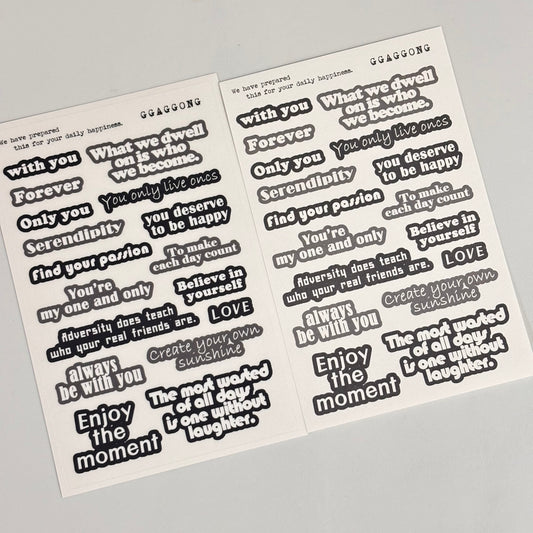 We have prepared
this for your daily happiness.
GGAGGONG
with you
What we dwell
on is who
we become.
Forever
You only live oncs
Only you
you deserve
to be happy
Serendipity
To make
each day count
find your passion
Believe in
yourself
You're
my one and only
LOVE
Adversity does teach
who your real friends are.
Create your own
sunshine
always
be with you
The most wasted
of all days
is one without
laughter.
Enjoy
the
moment
We have prepared
this for your daily happiness.
GGAGGONG
with you
What we dwell
on is who
we become.
Forever
You only live oncs
Only you
you deserve
to be happy
Serendipity
To make
each day count
find your passion
Believe in
yourself
You're
my one and only
LOVE
Adversity does teach
who your real friends are.
Create your own
sunshine
always
be with you
The most wasted
of all days
is one without
laughter.
Enjoy
the
moment